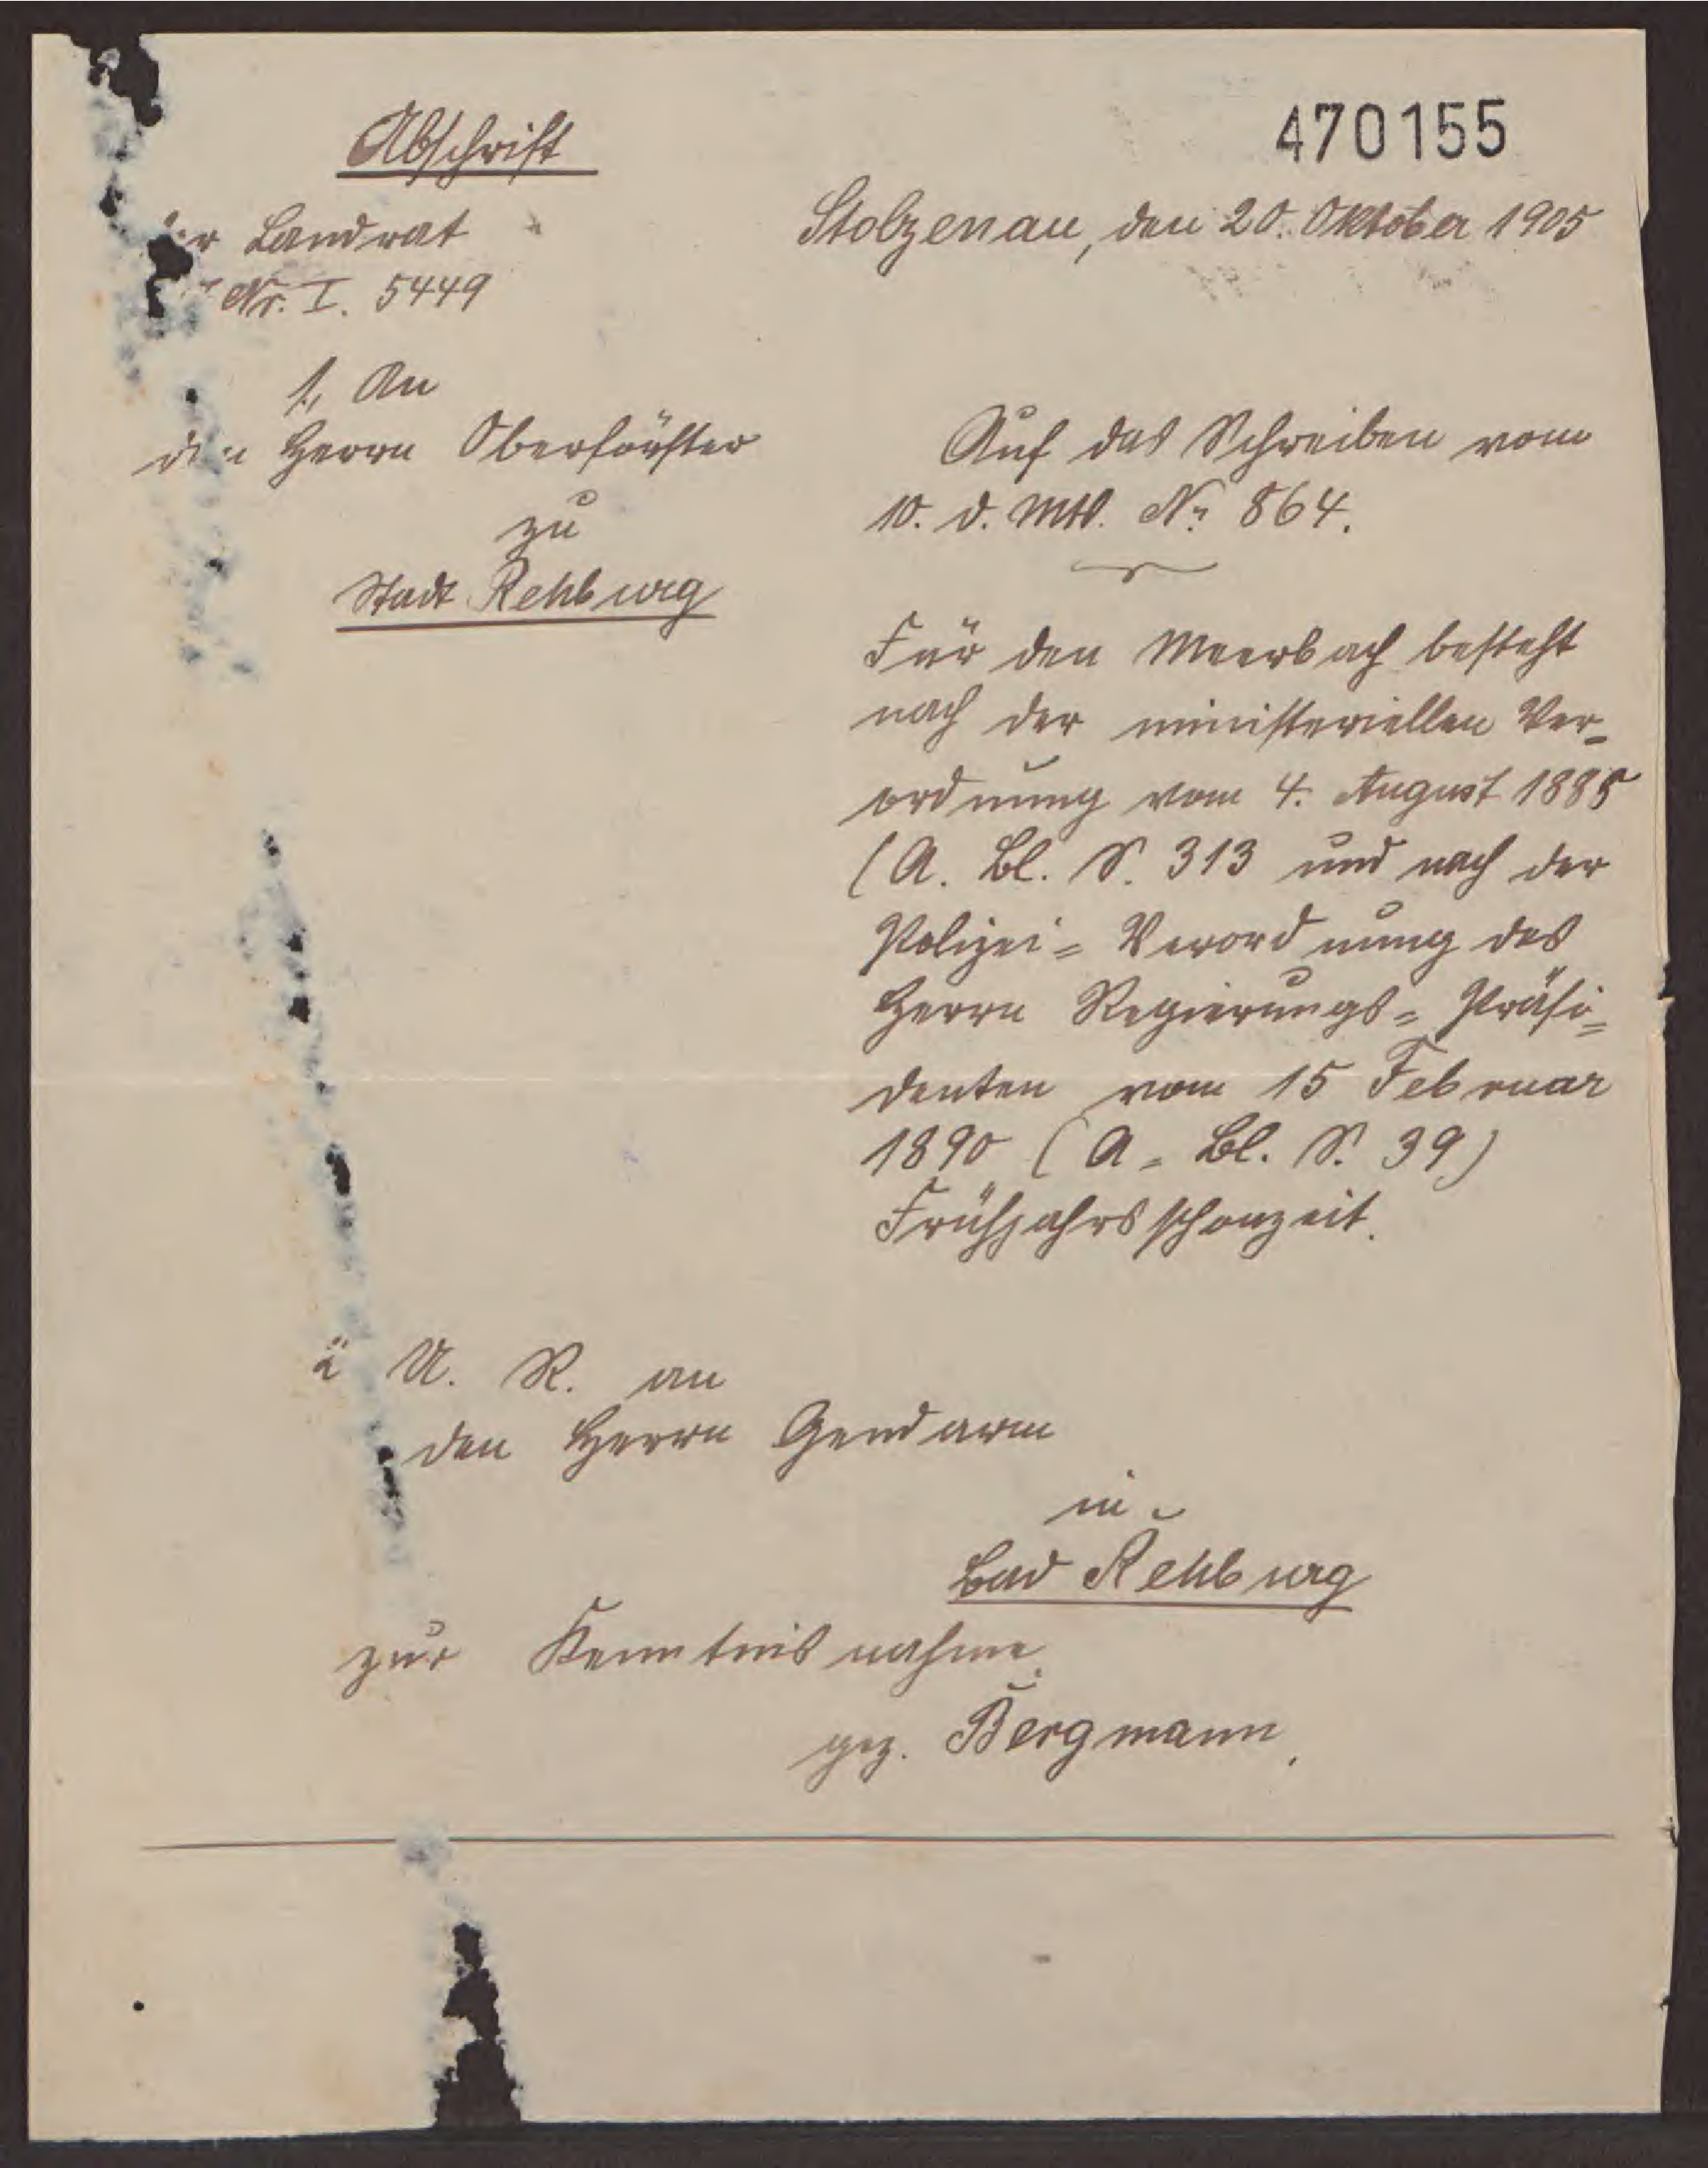 Abschrift
470155
Landrat
Stolzenau, den 20. Oktober 1905
Nr. I. 5449
1., An
den Herrn Oberförster
zu
Stadt Rehburg
Auf das Schreiben vom
10. d. Mts. No 864.
Für den Meerbach besteht
nach der ministeriellen Ver-
ordnung vom 4. August 1885
(A. Bl. S. 313 und nach der
Polizei- Verordnung des
Herrn Regierungs- Präsi-
denten vom 15 Februar
1890 (A. Bl. S. 39)
Frühjahrsschonzeit.
U. R. an
den Herrn Gendarm
in
Bad Rehburg
zur Kenntnisnahme.
gez. Bergmann.